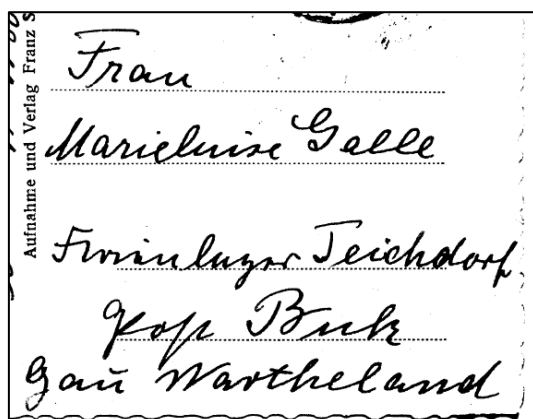 Aufnahme und Verlag Franz S
Frau
Marieluise Galle
Ferienlager Teichdorf
Post Buk
Gau Wartheland